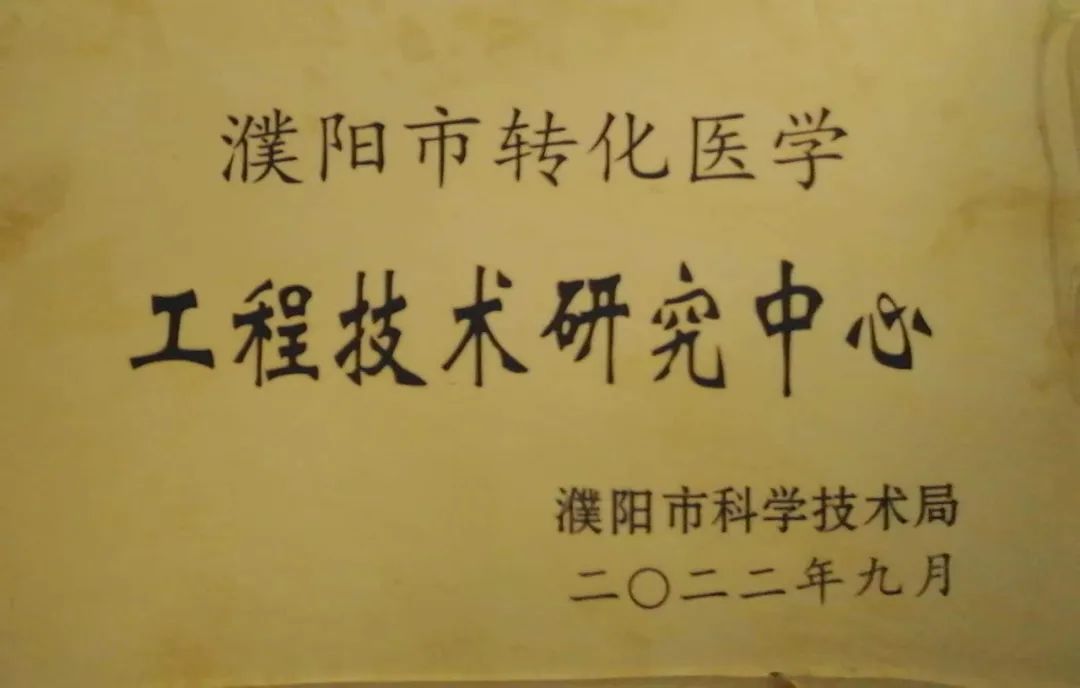 濮阳市转化医学
工程技术研究中心
濮阳市科学技术局
二〇二二年九月